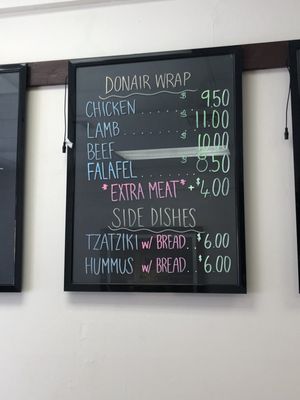 DONAIR WRAP
CHICKEN ....... $ 9.50
LAMB ......... $ 11.00
BEEF ......... $ 10.00
FALAFEL ...... $ 8.50
*EXTRA MEAT* + $4.00
SIDE DISHES
TZATZIKI w/ BREAD.. $6.00
HUMMUS w/ BREAD.. $6.00